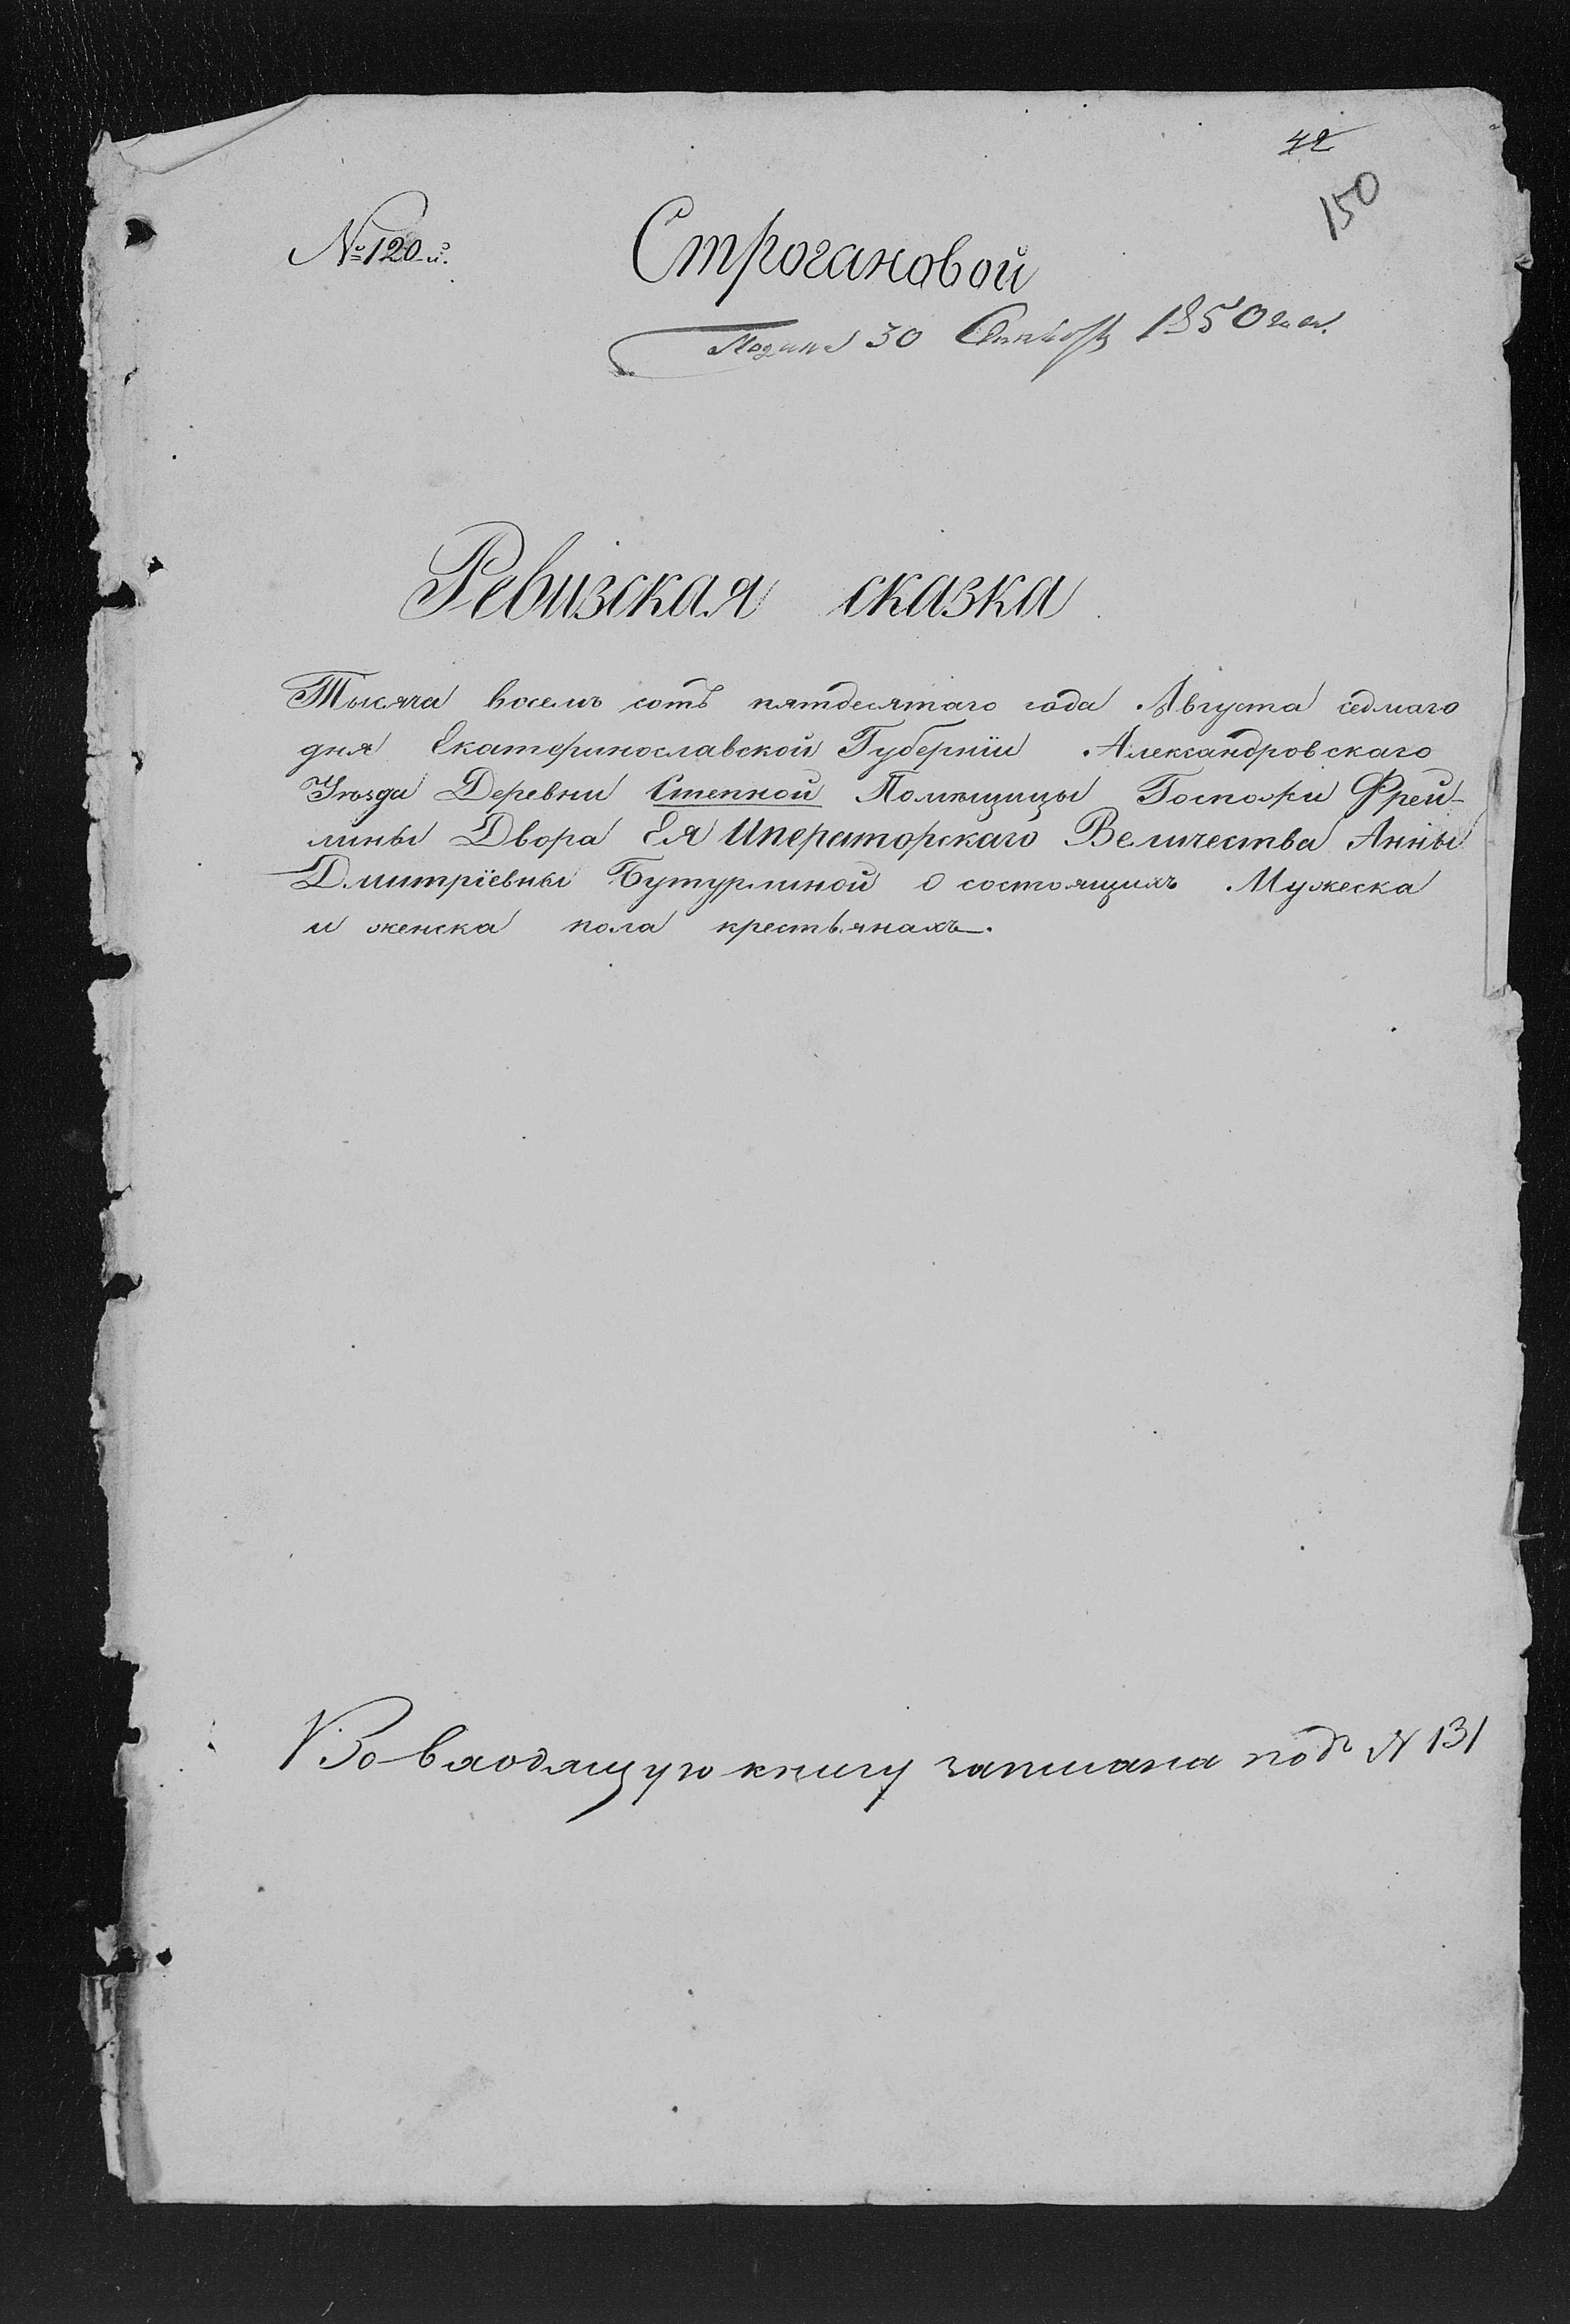 42
150
№ 120-й.
Строгановой
Подана 30 Октября 1850 года.
Ревизская сказка
Тысяча восемь сотъ пятдесятаго года Августа седмаго
дня Екатеринославской Губерніи Александровскаго
Уѣзда Деревни Степной Помѣщицы Госпожи Фрей-
лины Двора Ея Императорскаго Величества Анны
Дмитріевны Бутурлиной о состоящихъ Мужеска
и женска пола крестьянахъ.
Во входящую книгу записана подъ N 131